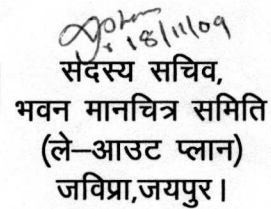 18/11/09
सदस्य सचिव,
भवन मानचित्र समिति
(ले–आउट प्लान)
जविप्रा,जयपुर।